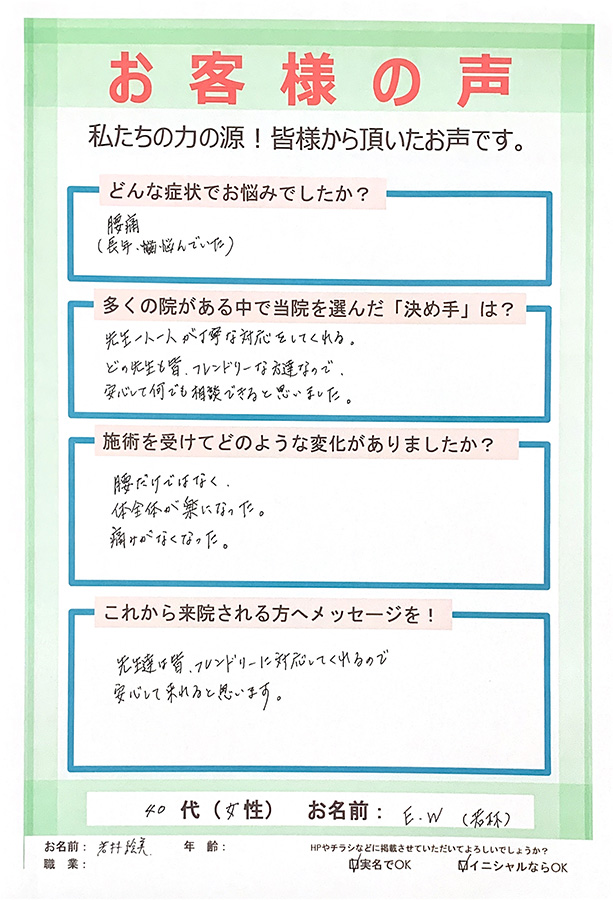 お客様の声
私たちの力の源！皆様から頂いたお声です。
どんな症状でお悩みでしたか？
腰痛
(長年、悩んでいた)
多くの院がある中で当院を選んだ「決め手」は？
先生一人一人が丁寧な対応をしてくれる。
どの先生も皆、フレンドリーな方達なので、
安心して何でも相談できると思いました。
施術を受けてどのような変化がありましたか？
腰だけではなく、
体全体が楽になった。
痛みがなくなった。
これから来院される方へメッセージを！
先生達は皆、フレンドリーに対応してくれるので
安心して来れると思います。
40 代（女性） お名前： E.W (若林)
お名前： 年 齢： HPやチラシなどに掲載させていただいてよろしいでしょうか？
職 業： ☑実名でOK ☑イニシャルならOK